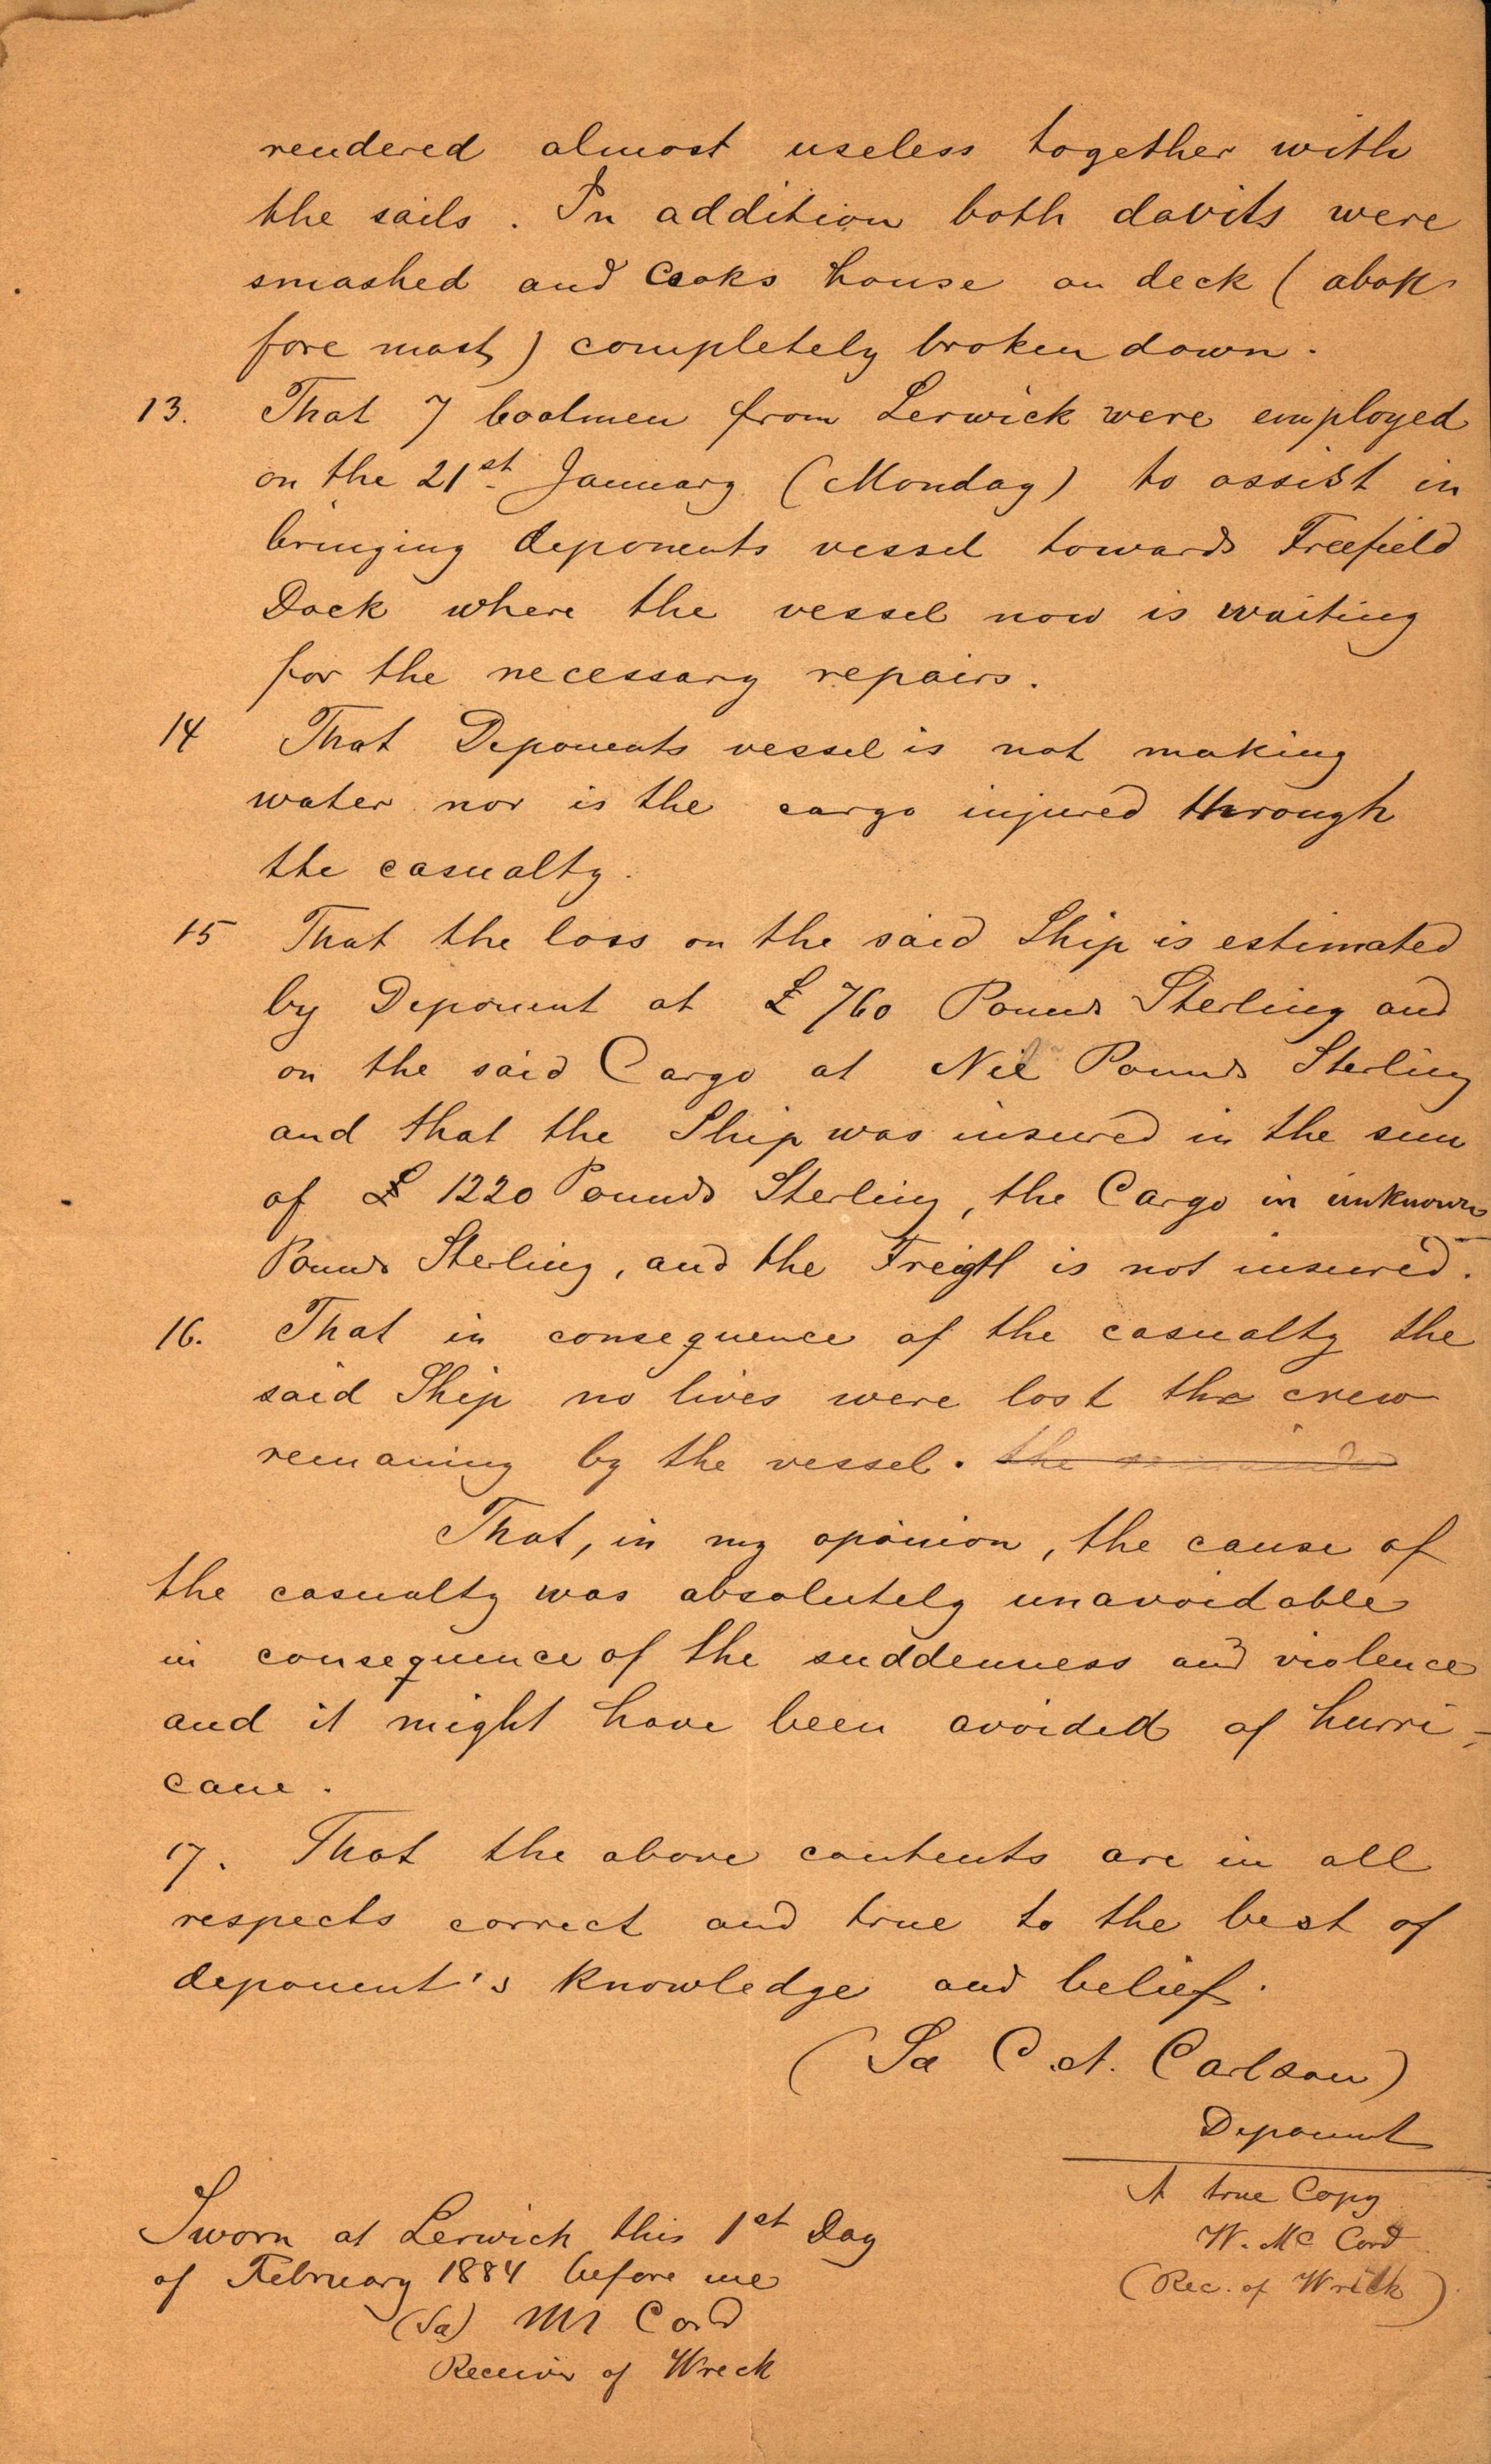 rendered almost useless together with
the sails. In addition both davits were
smashed and Cooks house on deck (abaft
fore mast) completely broken down.
13. That 7 boatmen from Lerwick were employed
on the 21st January (Monday) to assist in
bringing deponents vessel towards Freefield
Dock where the vessel now is waiting
for the necessary repairs.
14 That Deponents vessel is not making
water nor is the cargo injured through
the casualty.
15 That the loss on the said Ship is estimated
by Deponent at £ 760 Pounds Sterling and
on the said Cargo at Nil Pounds Sterling
and that the Ship was insured in the sum
of £ 1220 Pounds Sterling, the Cargo in unknown
Pounds Sterling, and the Freigtt is not insured.
16. That in consequence of the casualty the
said Ship no lives were lost the crew
remaning by the vessel. the
That, in my opinion, the cause of
the casualty was absolutely unavoidable
in consequence of the suddenness and violence
and it might have been avoided of hurri-
cane.
17. That the above contents are in all
respects correct and true to the best of
deponent's knowledge and belief.
(Sd C. A. Carlson)
Deponent
A true Copy
W. Mc Cord
(Rec. of Wreck)
Sworn at Lerwich this 1st Day
of February 1884 before me
(Sd) Cord
Receiver of Wreck